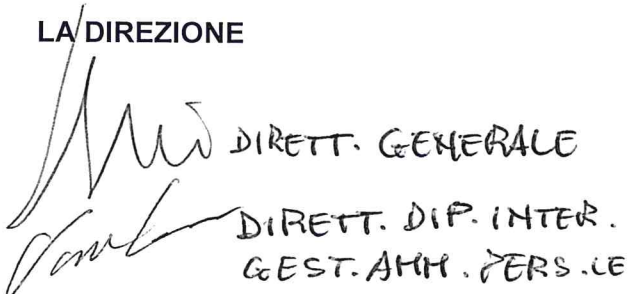 LA DIREZIONE
DIRETT. GENERALE
DIRETT. DIP. INTER.
GEST. AMM. PERS.LE